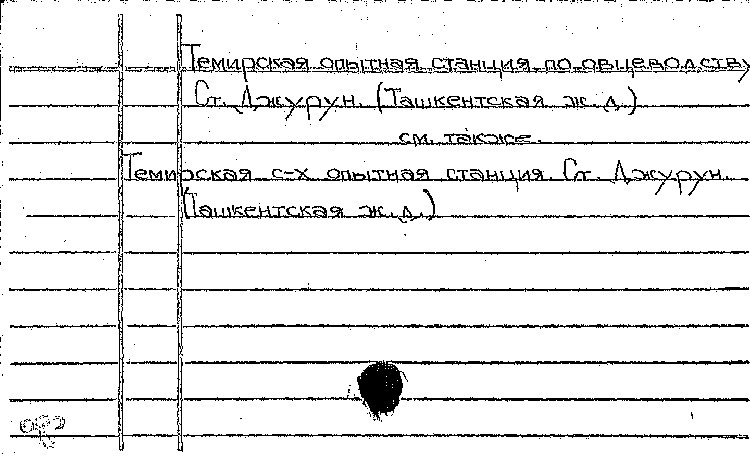 Темирская опытная станция по овцеводству
Ст. Джурун. (Ташкентская ж. д.)
см. также.
Темирская с-х опытная станция. Ст. Джурун.
(Ташкентская ж. д.)